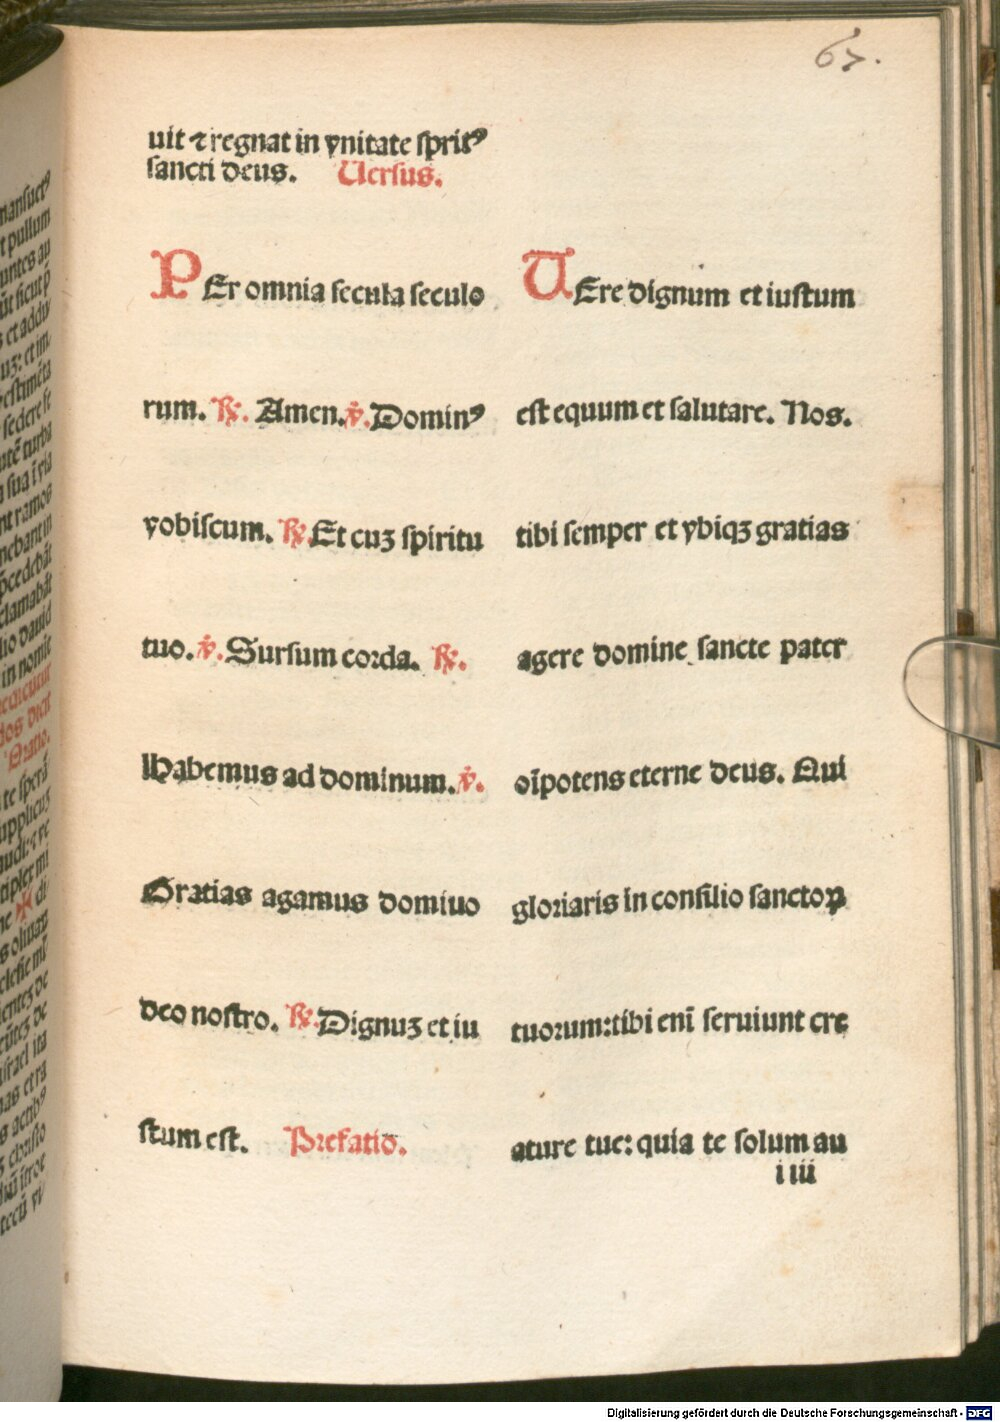 67.
uit ⁊ regnat in vnitate sprit᾽
sancti deus. Uersus.
PEr omnia secula seculo
rum. ℟. Amen. ℣. Domin᾽
vobiscum. ℟. Et cuʒ spiritu
tuo. ℣. Sursum corda. ℟.
Habemus ad dominum. ℣.
Gratias agamus domiuo
deo nostro. ℟. Dignuʒ et iu
stum est. Prefatio.
UEre dignum et iustum
est equum et salutare. Nos.
tibi semper et vbiqʒ gratias
agere domine sancte pater
oı̄potens eterne deus. Qui
gloriaris in consilio sanctoꝝ
tuorum: tibi enı̄ seruiunt cre
ature tue: quia te solum au
i iii
Digitalisierung gefördert durch die Deutsche Forschungsgemeinschaft - DFG